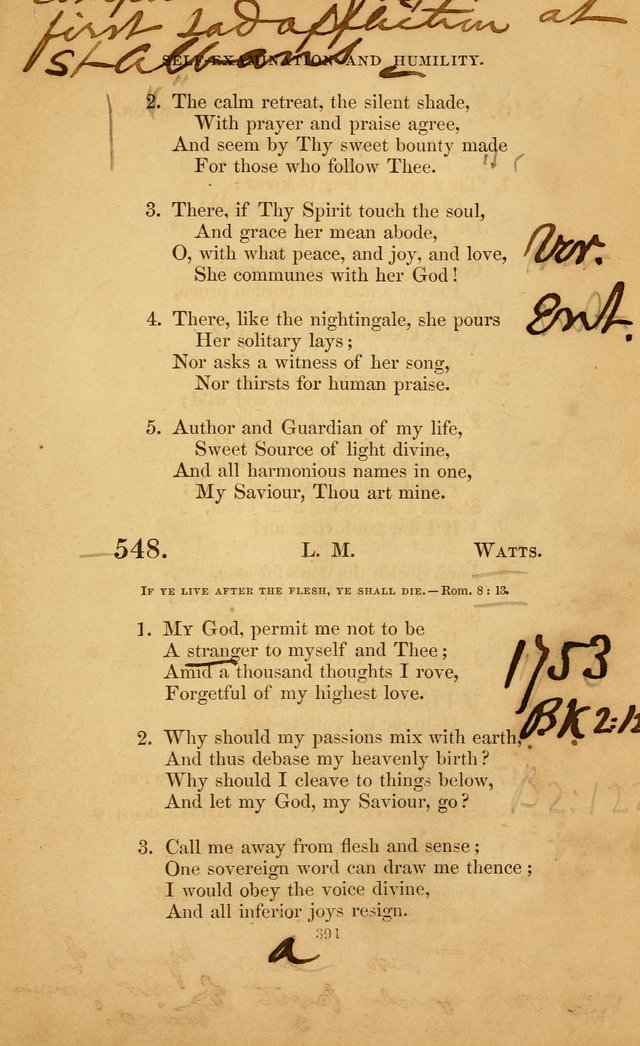 first sad affliction at
St Albans
SELF-EXAMINATION AND HUMILITY.
2. The calm retreat, the silent shade,
With prayer and praise agree,
And seem by Thy sweet bounty made
For those who follow Thee.
3. There, if Thy Spirit touch the soul,
And grace her mean abode,
O, with what peace, and joy, and love,
She communes with her God!
Vor.
Ent.
4. There, like the nightingale, she pours
Her solitary lays;
Nor asks a witness of her song,
Nor thirsts for human praise.
5. Author and Guardian of my life,
Sweet Source of light divine,
And all harmonious names in one,
My Saviour, Thou art mine.
548. L. M. WATTS.
IF YE LIVE AFTER THE FLESH, YE SHALL DIE.—Rom. 8:13.
1. MY God, permit me not to be
A stranger to myself and Thee;
Amid a thousand thoughts I rove,
Forgetful of my highest love.
1753
BK 2:12
2. Why should my passions mix with earth,
And thus debase my heavenly birth?
Why should I cleave to things below,
And let my God, my Saviour, go?
B2:122
3. Call me away from flesh and sense;
One sovereign word can draw me thence;
I would obey the voice divine,
And all inferior joys resign.
391
a